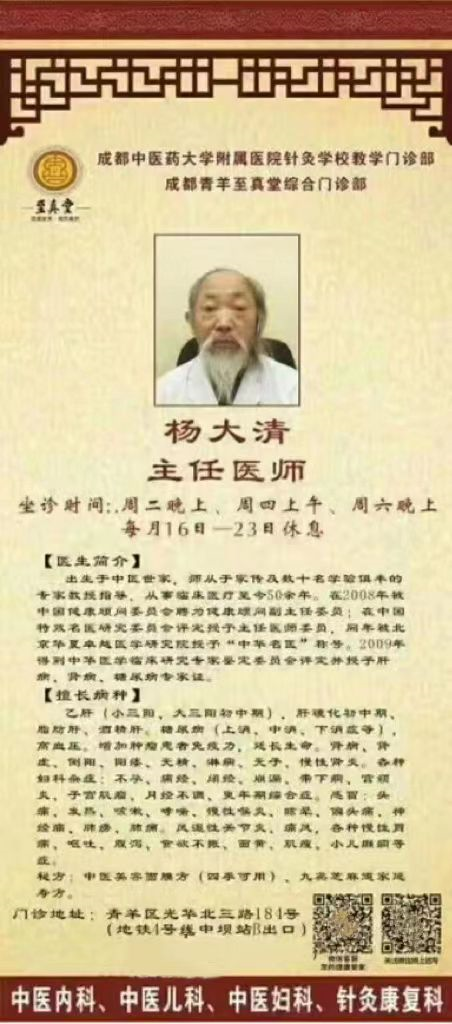 成都中医药大学附属医院针灸学校教学门诊部
成都青羊至真堂综合门诊部
至真堂
杨大清
主任医师
坐诊时间:.周二晚上、周四上午、周六晚上
每月16日—23日休息
【医生简介】
出生于中医世家，师从于家传及数十名学验俱丰的
专家教授指导，从事临床医疗至今50余年。在2008年被
中国健康顾问委员会聘为健康顾问副主任委员；在中国
特效名医研究委员会评定授于主任医师委员，同年被北
京华夏卓越医学研究院授予“中华名医”称号。2009年
得到中华医学临床研究专家鉴定委员会评定并授予肝
病、肾病、糖尿病专家证。
【擅长病种】
乙肝（小三阳、大三阳初中期），肝硬化初中期、
脂肪肝、酒精肝。糖尿病（上消、中消、下消症等），
高血压。增加肿瘤患者免疫力，延长生命。肾病、肾
虚、倒阳、阳痿、无精、淋病、无子、慢性肾炎。各种
妇科杂症：不孕、痛经、闭经、崩漏、带下病、宫颈
炎、子宫肌瘤、月经不调、更年期综合症。感冒：头
痛、发热、咳嗽、哮喘、慢性喉炎、眩晕、偏头痛、神
经痛、肺痨、肺病。风湿性关节炎、痛风，各种慢性胃
病、呕吐、腹泻、食欲不振、面黄、肌瘦、小儿癫痫等
症。
秘方：中医美容面膜方（四季可用）、九蒸芝麻道家延
寿方。
门诊地址：青羊区光华北三路184号
（地铁4号线中坝站B出口）
中医内科、中医儿科、中医妇科、针灸康复科